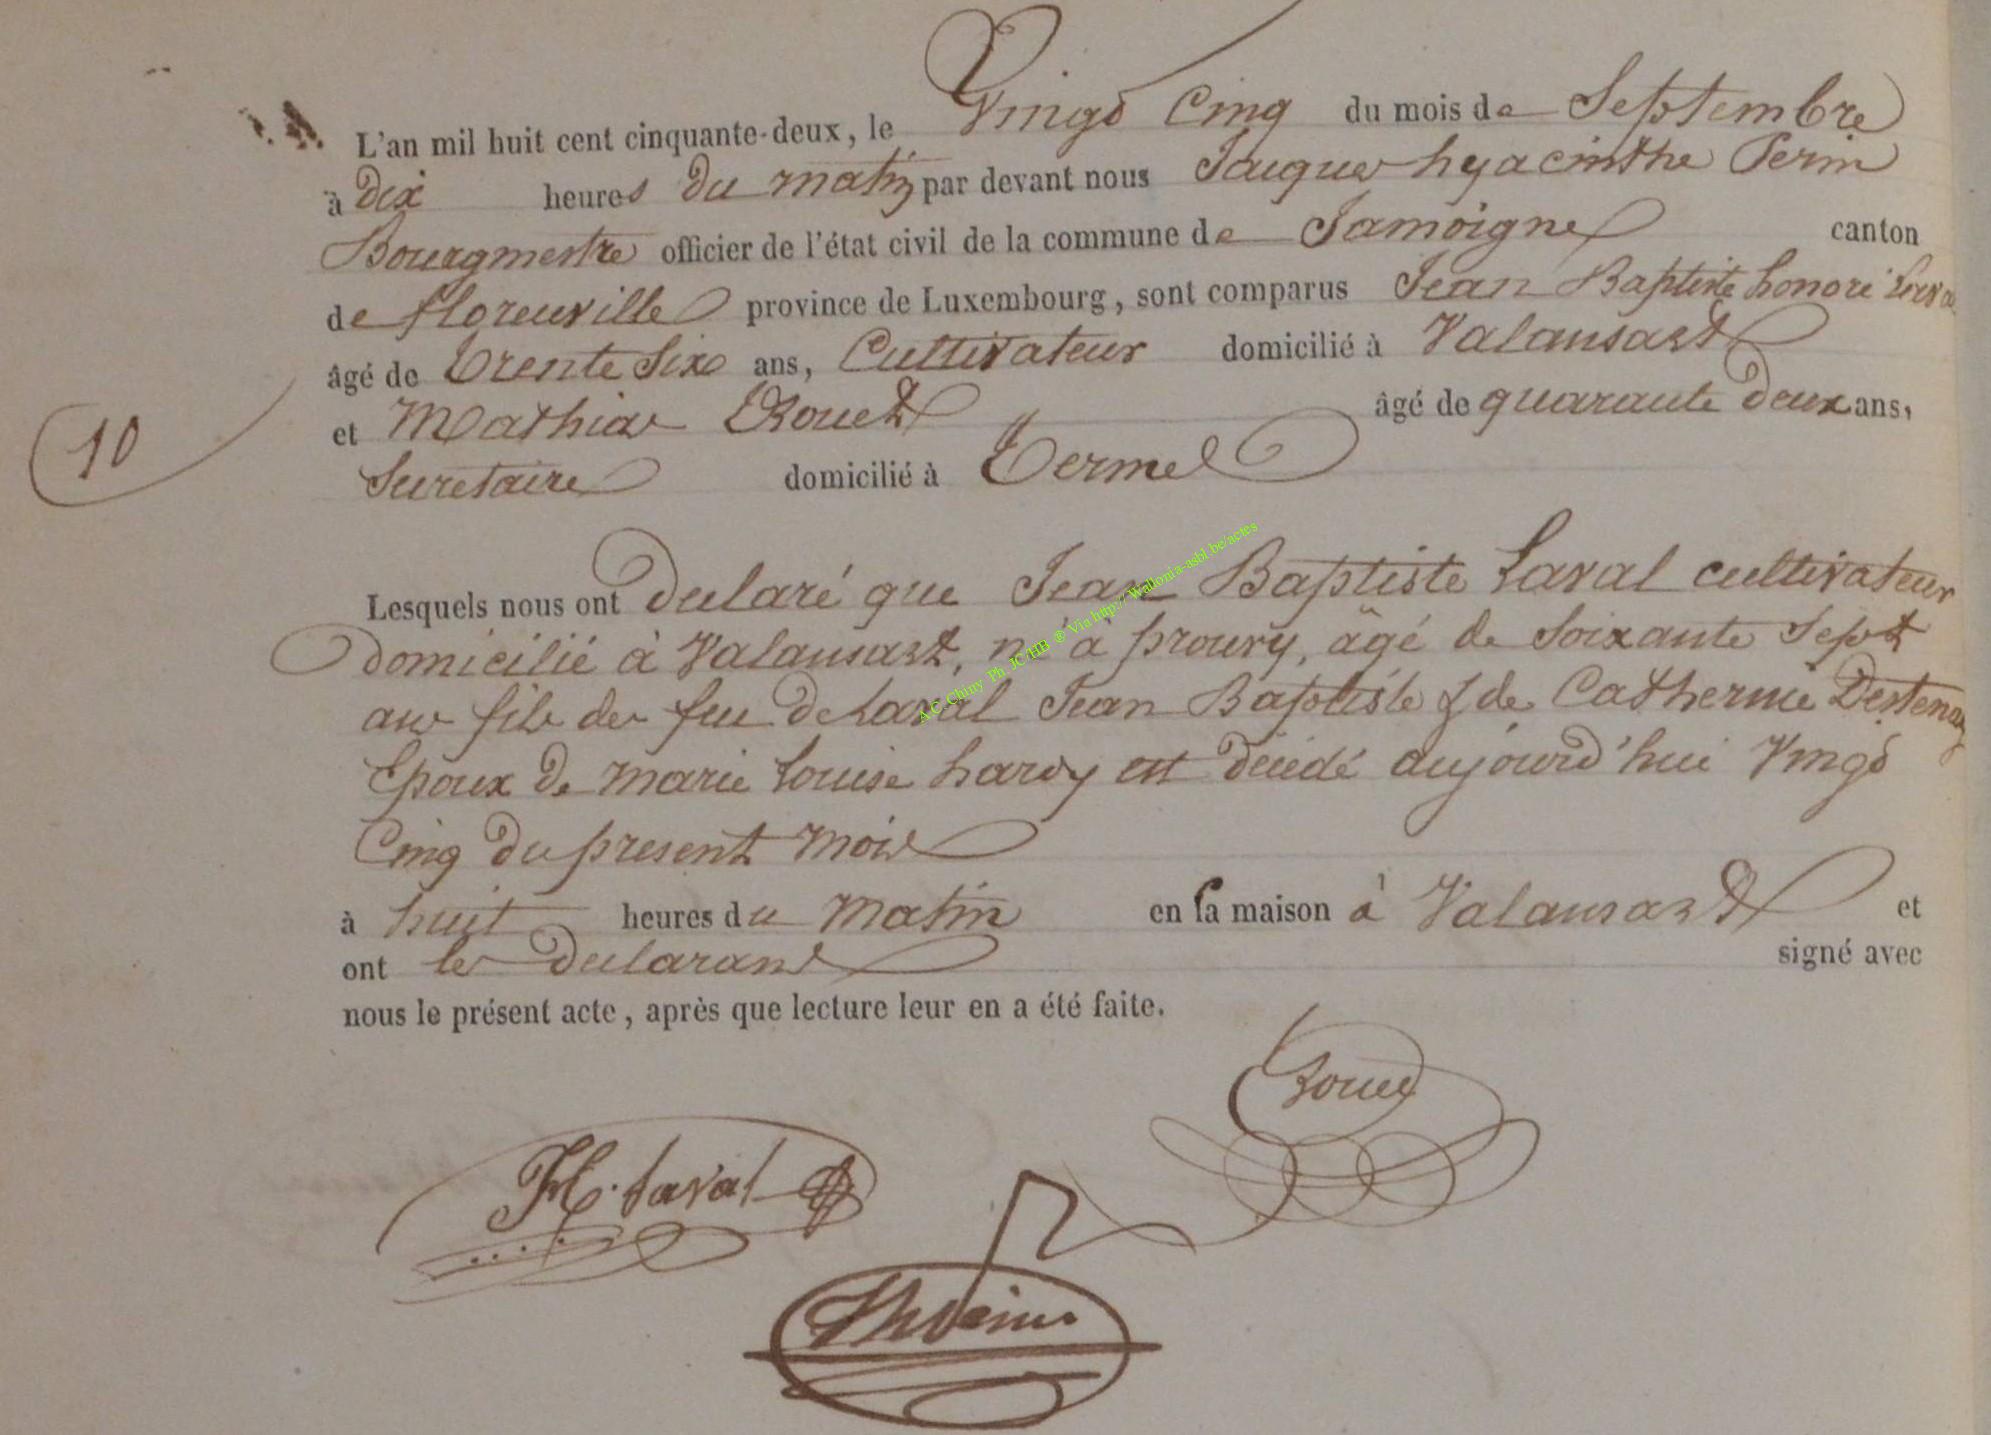 L'an mil huit cent cinquante-deux, le Vingt Cinq du mois de Septembre
à dix heures du matin par devant nous Jacques hyacinthe Perin
Bourgmestre officier de l'état civil de la commune de Jamoigne canton
de florenville province de Luxembourg, sont comparus Jean Baptiste honoré
âgé de trente Six ans, Cultivateur domicilié à Valansart
et Mathias Rouet âgé de quarante deux ans,
10
Secretaire domicilié à Termes
Lesquels nous ont declaré que Jean Baptiste Laval cultivateur
domicilié à Valansart, né à prouvy, âgé de Soixante Sept
ans fils des feu de Laval Jean Baptiste & de Catherine Destenay
Epoux de marie Louise hardy est décédé aujourd'hui Vingt
Cinq du present mois
à huit heures du matin en sa maison à Valansart et
ont les declarans signé avec
nous le présent acte, après que lecture leur en a été faite.
Rouet
H. Laval
A.C. Chiny Ph. JC HB ® Via http:// Wallonia-asbl.be/actes